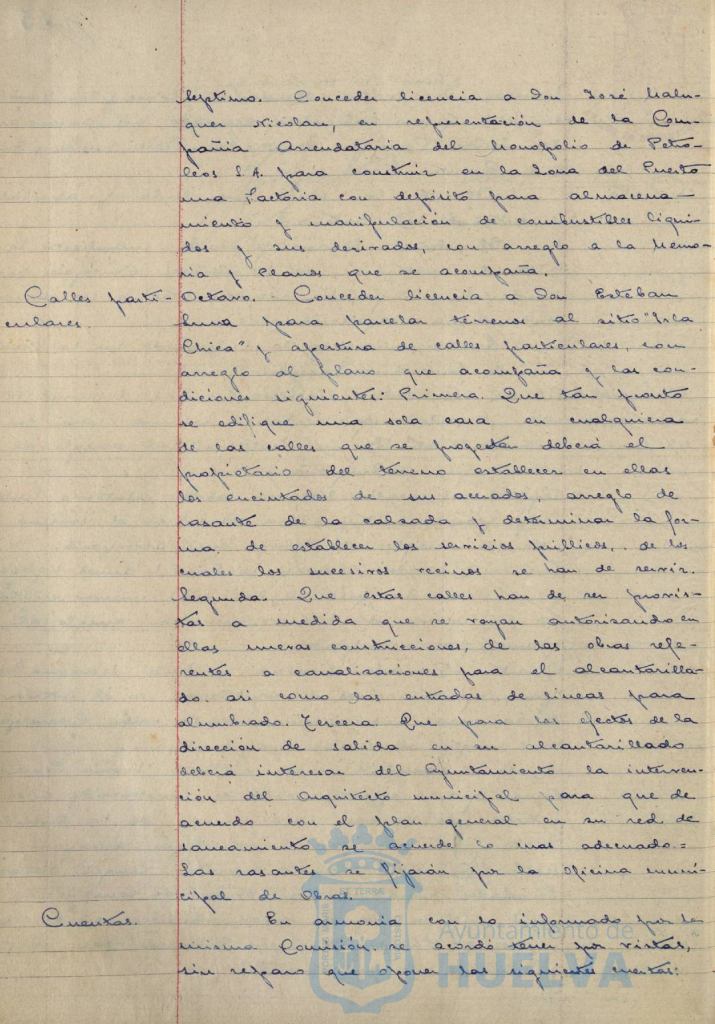 Septimo. Conceder licencia a Don José Malu-
quer Nicolau, en representación de la Com-
pañia Arrendataria del Monopolio de Petro-
leos S.A. para construir en la Zona del Puerto
una Factoria con depósito para almacena-
miento y manipulación de combustibles liqui-
dos y sus derivados, con arreglo a la Memo-
ria y Planos que se acompaña.
Calles parti-
culares.
Octavo. Conceder licencia a Don Esteban
para parcelar terrenos al sitio "Isla
Chica" y apertura de calles particulares, con
arreglo al plano que acompaña y las con-
diciones siguientes: Primera. Que tan pronto
se edifique una sola casa en cualquiera
de las calles que se proyectan deberá el
propietario del terreno establecer en ellas
los encintados de sus acerados, arreglo de
rasante de la calzada y determinar la for-
ma de establecer los servicios públicos, de los
cuales los sucesivos vecinos se han de servir.
Segunda. Que estas calles han de ser provis-
tas a medida que se vayan autorizando en
ellas nuevas construcciones, de las obras refe-
rentes a canalizaciones para el alcantarilla-
do, asi como las entradas de lineas para
alumbrado. Tercera. Que para los efectos de la
dirección de salida en su alcantarillado
deberá interesar del Ayuntamiento la interven-
ción del Arquitecto municipal para que de
acuerdo con el plan general en su red de
saneamiento se acuerde lo mas adecuado.=
Las rasantes se fijarán por la Oficina muni-
cipal de Obras.
Cuentas.
En armonia con lo informado por la
misma Comisión se acordó tener por vistas,
sin reparo que oponer las siguientes cuentas:
Ayuntamiento de
HUELVA